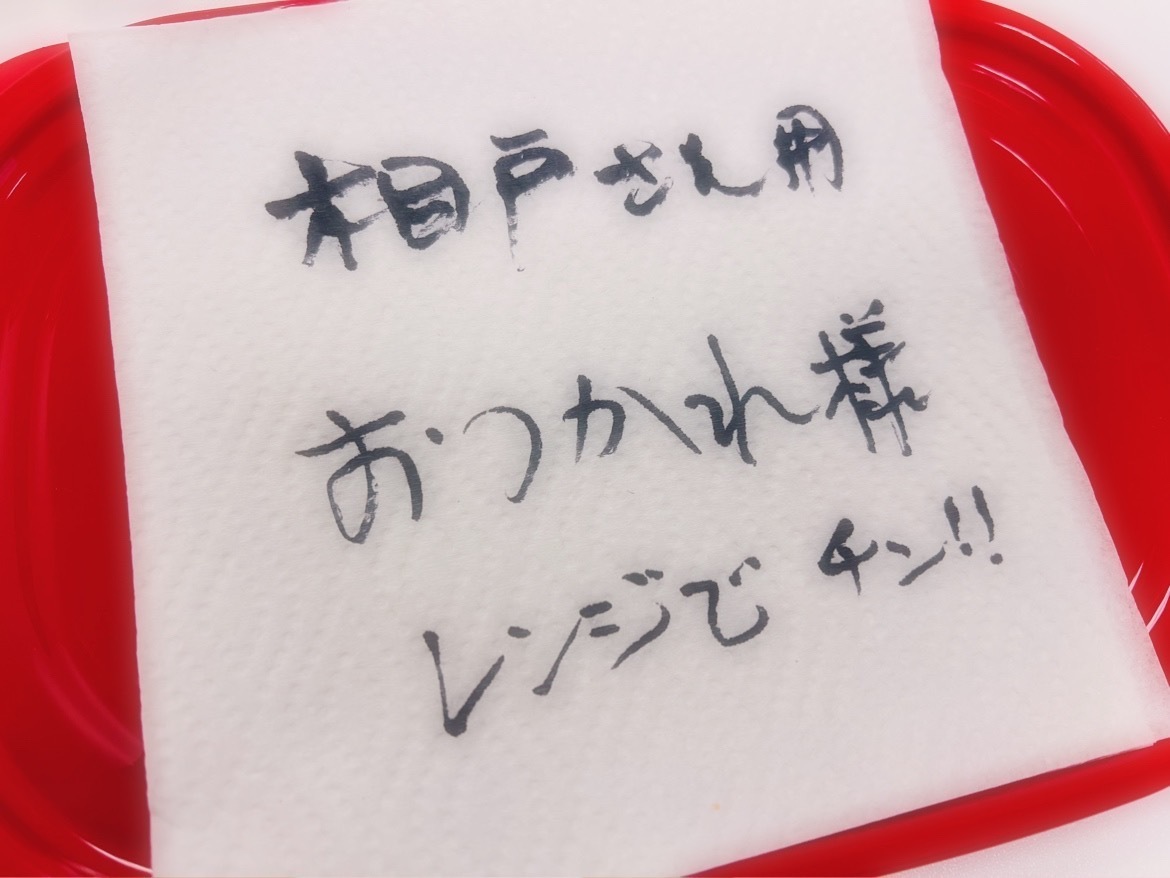 相戸さん用
おつかれ様
レンジでチン!!